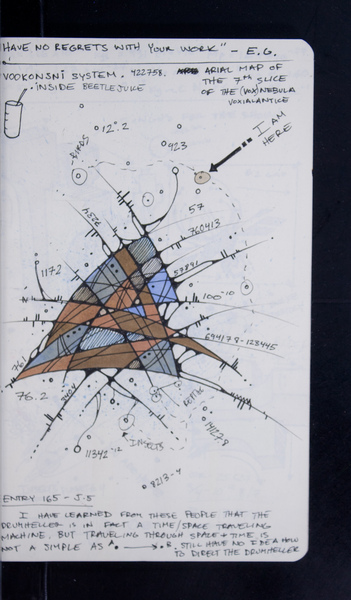 HAVE NO REGRETS WITH YOUR WORK" - E.G.
VOOKONSNI SYSTEM. 422758.
INSIDE BEETLEJUKE
ARIAL MAP OF
THE 7TH SLICE
OF THE (VOX)NEBULA
VOXIALANTICE
I AM
HERE
12°.2
923
BIRDS
57
760418
1172
57841
100^-10
694178-128445
761
76.2
11342^-12
INSECTS
14127.8
8213-4
ENTRY 165 - J.5
I HAVE LEARNED FROM THESE PEOPLE THAT THE
DRUMHELLER IS IN FACT A TIME/SPACE TRAVELING
MACHINE, BUT TRAVELING THROUGH SPACE + TIME IS
NOT A SIMPLE AS A. → B. STILL HAVE NO IDEA HOW
TO DIRECT THE DRUMHELLER